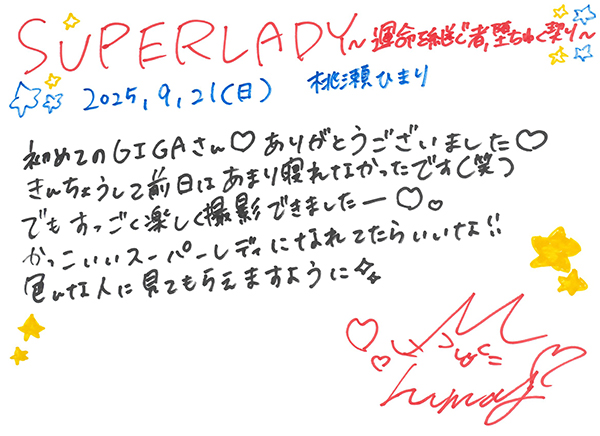 SUPERLADY～運命を継ぐ者、堕ちゆく契り～
2025,9,21(日) 桃瀬ひまり
初めてのGIGAさん♡ありがとうございました♡
きんちょうして前日はあまり寝れなかったです(笑)
でもすっごく楽しく撮影できましたー♡。
かっこいいスーパーレディになれてたらいいな!!
色んな人に見てもらえますように